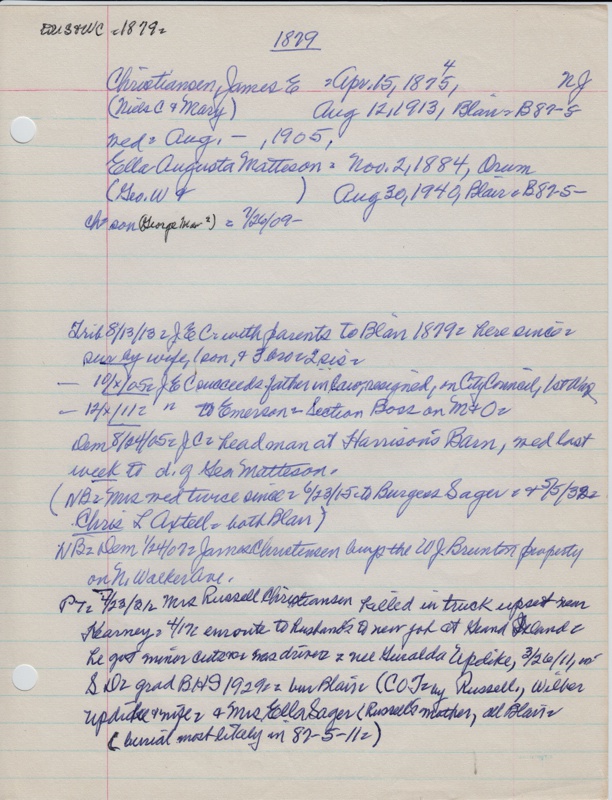 EDUS&WC =1879=
1879
Christiansen, James E = Apr. 15, 1875, 4 NJ
(Niels C & Mary) Aug 12, 1913, Blair = B 87-5
med = Aug. -, 1905,
Ella Augusta Matteson = Nov. 2, 1884, Orum
(Geo. W & ) Aug 30, 1940, Blair = B 87-5-
Ch = son (George Mar ?) = 7/26/09-
Trib 8/13/13 = J E C = with parents to Blair 1879 = here since =
sur by wife, 1 son, & 3 bro = 2 sis =
- 10/x/05 = J E C succeeds father in law, resigned, on City Council, 1st Wd
- 12/x/11 = " to Emerson = Section Boss on M & O =
Dem 8/24/05 = J C = head man at Harrison's Barn, med last
week to d. of Geo Matteson.
(NB = Mrs med twice since = 6/23/15 = to Burgess Sager = & 5/5/38 =
Chris L Axtell = both Blair)
NB = Dem 1/24/07 = James Christensen buys the W J Brunton property
on N. Walker Ave.
PT = 4/23/ = Mrs Russell Christiansen killed in truck upset near
Kearney = 4/17 = enroute to husband's new job at Grand Island =
he got minor cuts = was driver = nee Geralda Updike, 3/26/11, in
S D = grad BHS 1929 = = bur Blair = (COT = by Russell, Wilber
Updike & wife = & Mrs Ella Sager (Russell's mother, all Blair =
(burial most likely in 87-5-11 =)